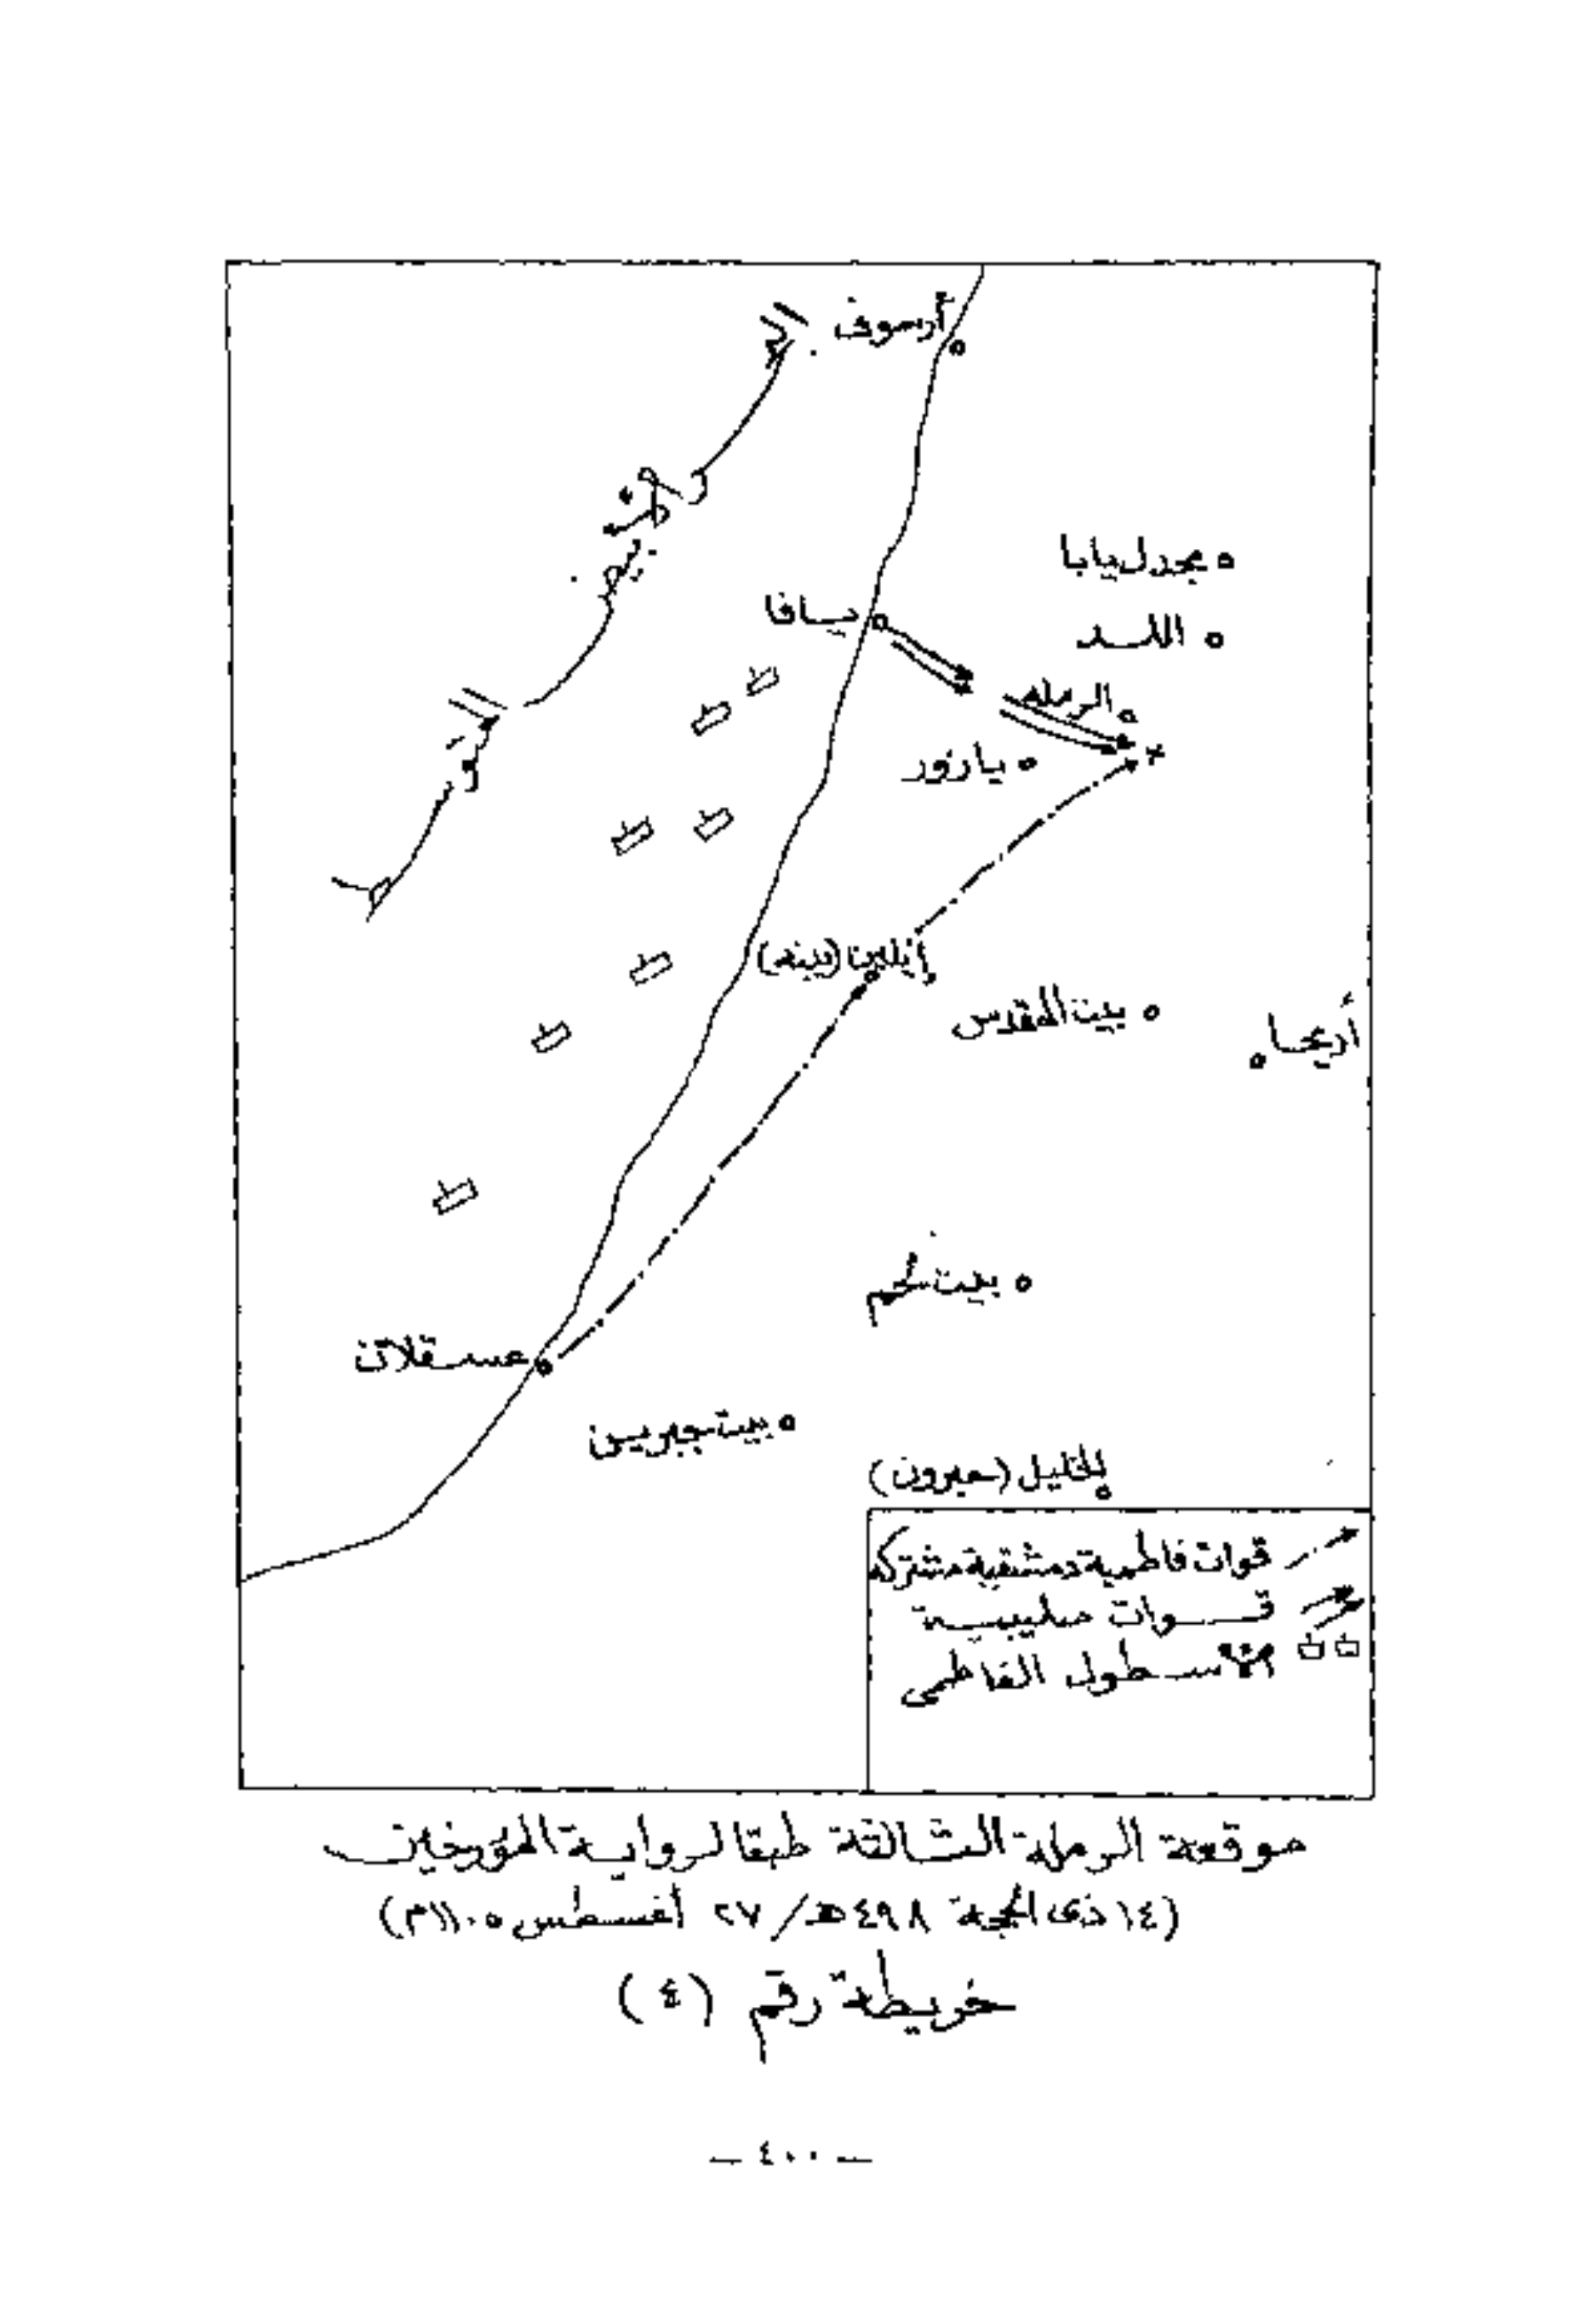 أرسوف
البحر المتوسط
مجدل يابا
يافا
اللد
الرملة
يازور
إبلين (يبنه)
بيت المقدس
أريحا
بيت لحم
عسقلان
بيت جبرين
الخليل (حبرون)
قوات فاطمية دمشقية مشتركه
قوات صليبية
الأسطول الفاطمى
موقعة الرملة الثالثة طبقا لرواية المؤرخين
(١٤ ذى الحجة ٤٩٨هـ/ ٢٧ أغسطس ١١٠٥م)
خريطة رقم (٤)
— ٤٠٠ —